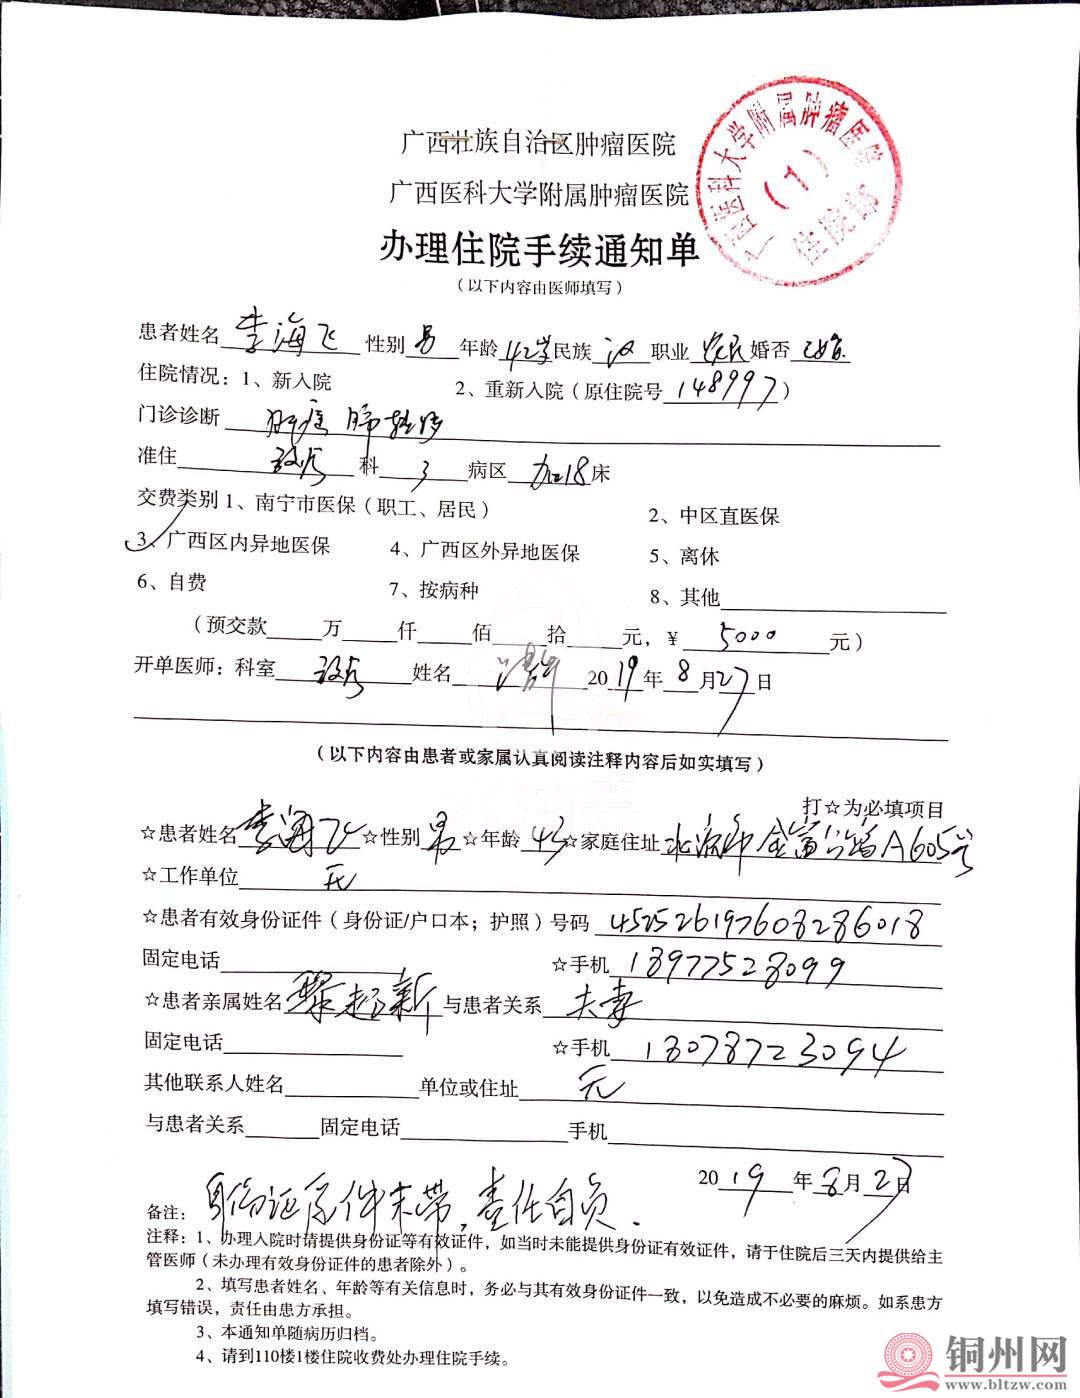 广西壮族自治区肿瘤医院
广西医科大学附属肿瘤医院
广西医科大学附属肿瘤医院
(1)
住院部
办理住院手续通知单
(以下内容由医师填写)
患者姓名 李海飞 性别 男 年龄 42岁 民族 汉 职业 农民 婚否 已婚
住院情况:1、新入院 2、重新入院(原住院号 148997)
门诊诊断
准住 放疗 科 3 病区 加18 床
交费类别 1、南宁市医保(职工、居民) 2、中区直医保
3、广西区内异地医保 4、广西区外异地医保 5、离休
6、自费 7、按病种 8、其他
(预交款 万 仟 佰 拾 元,¥ 5000 元)
开单医师:科室 放疗 姓名 2019年8月27日
(以下内容由患者或家属认真阅读注释内容后如实填写)
打☆为必填项目
☆患者姓名 李海飞 ☆性别 男 ☆年龄 43 ☆家庭住址 北流市金富公路A605号
☆工作单位 无
☆患者有效身份证件(身份证/户口本;护照)号码 452526197608286018
固定电话 ☆手机 18977528099
☆患者亲属姓名 与患者关系 夫妻
固定电话 ☆手机 18078723094
其他联系人姓名 单位或住址 无
与患者关系 固定电话 手机
2019年8月27日
备注: 身份证原件未带,责任自负.
注释:1、办理入院时请提供身份证等有效证件,如当时未能提供身份证有效证件,请于住院后三天内提供给主
管医师(未办理有效身份证件的患者除外)。
2、填写患者姓名、年龄等有关信息时,务必与其有效身份证件一致,以免造成不必要的麻烦。如系患方
填写错误,责任由患方承担。
3、本通知单随病历归档。
4、请到110楼1楼住院收费处办理住院手续。
铜州网
www.bltzw.com